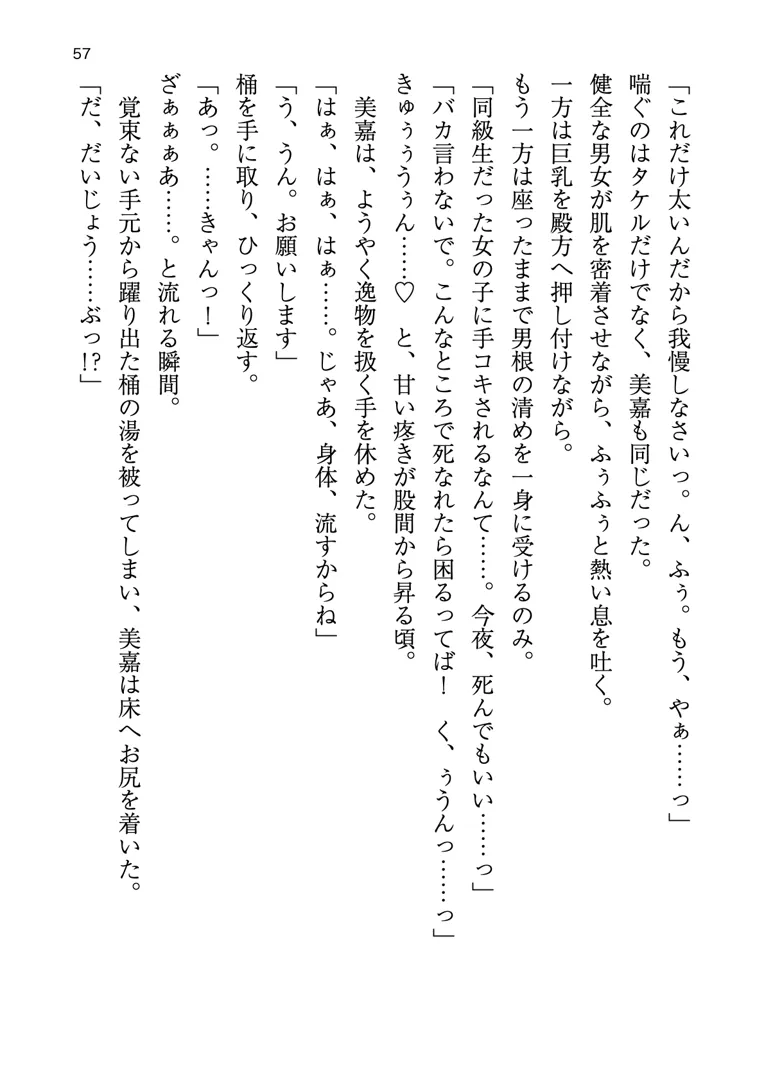 57
「これだけ太いんだから我慢しなさいっ。ん、ふぅ。もう、やぁ……っ」
喘ぐのはタケルだけでなく、美嘉も同じだった。
健全な男女が肌を密着させながら、ふぅふぅと熱い息を吐く。
一方は巨乳を殿方へ押し付けながら。
もう一方は座ったままで男根の清めを一身に受けるのみ。
「同級生だった女の子に手コキされるなんて……。今夜、死んでもいい……っ」
「バカ言わないで。こんなところで死なれたら困るってば！　く、ぅうんっ……っ」
きゅぅぅうぅん……♡　と、甘い疼きが股間から昇る頃。
美嘉は、ようやく逸物を扱く手を休めた。
「はぁ、はぁ、はぁ……。じゃあ、身体、流すからね」
「う、うん。お願いします」
桶を手に取り、ひっくり返す。
「あっ。……きゃんっ！」
ざぁぁぁあ……。と流れる瞬間。
覚束ない手元から躍り出た桶の湯を被ってしまい、美嘉は床へお尻を着いた。
「だ、だいじょう……ぶっ!?」